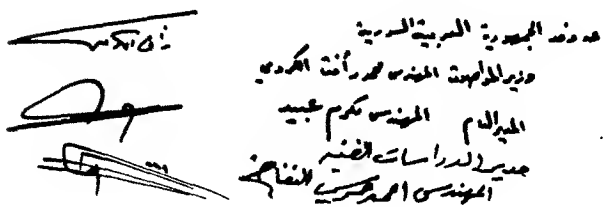 عن وفد الجمهورية العربية السورية
وزير المواصلات المهندس محمد رأفت الكردي
المدير العام المهندس مكرم عبيد
مدير الدراسات الفنية
المهندس احمد النفاخ